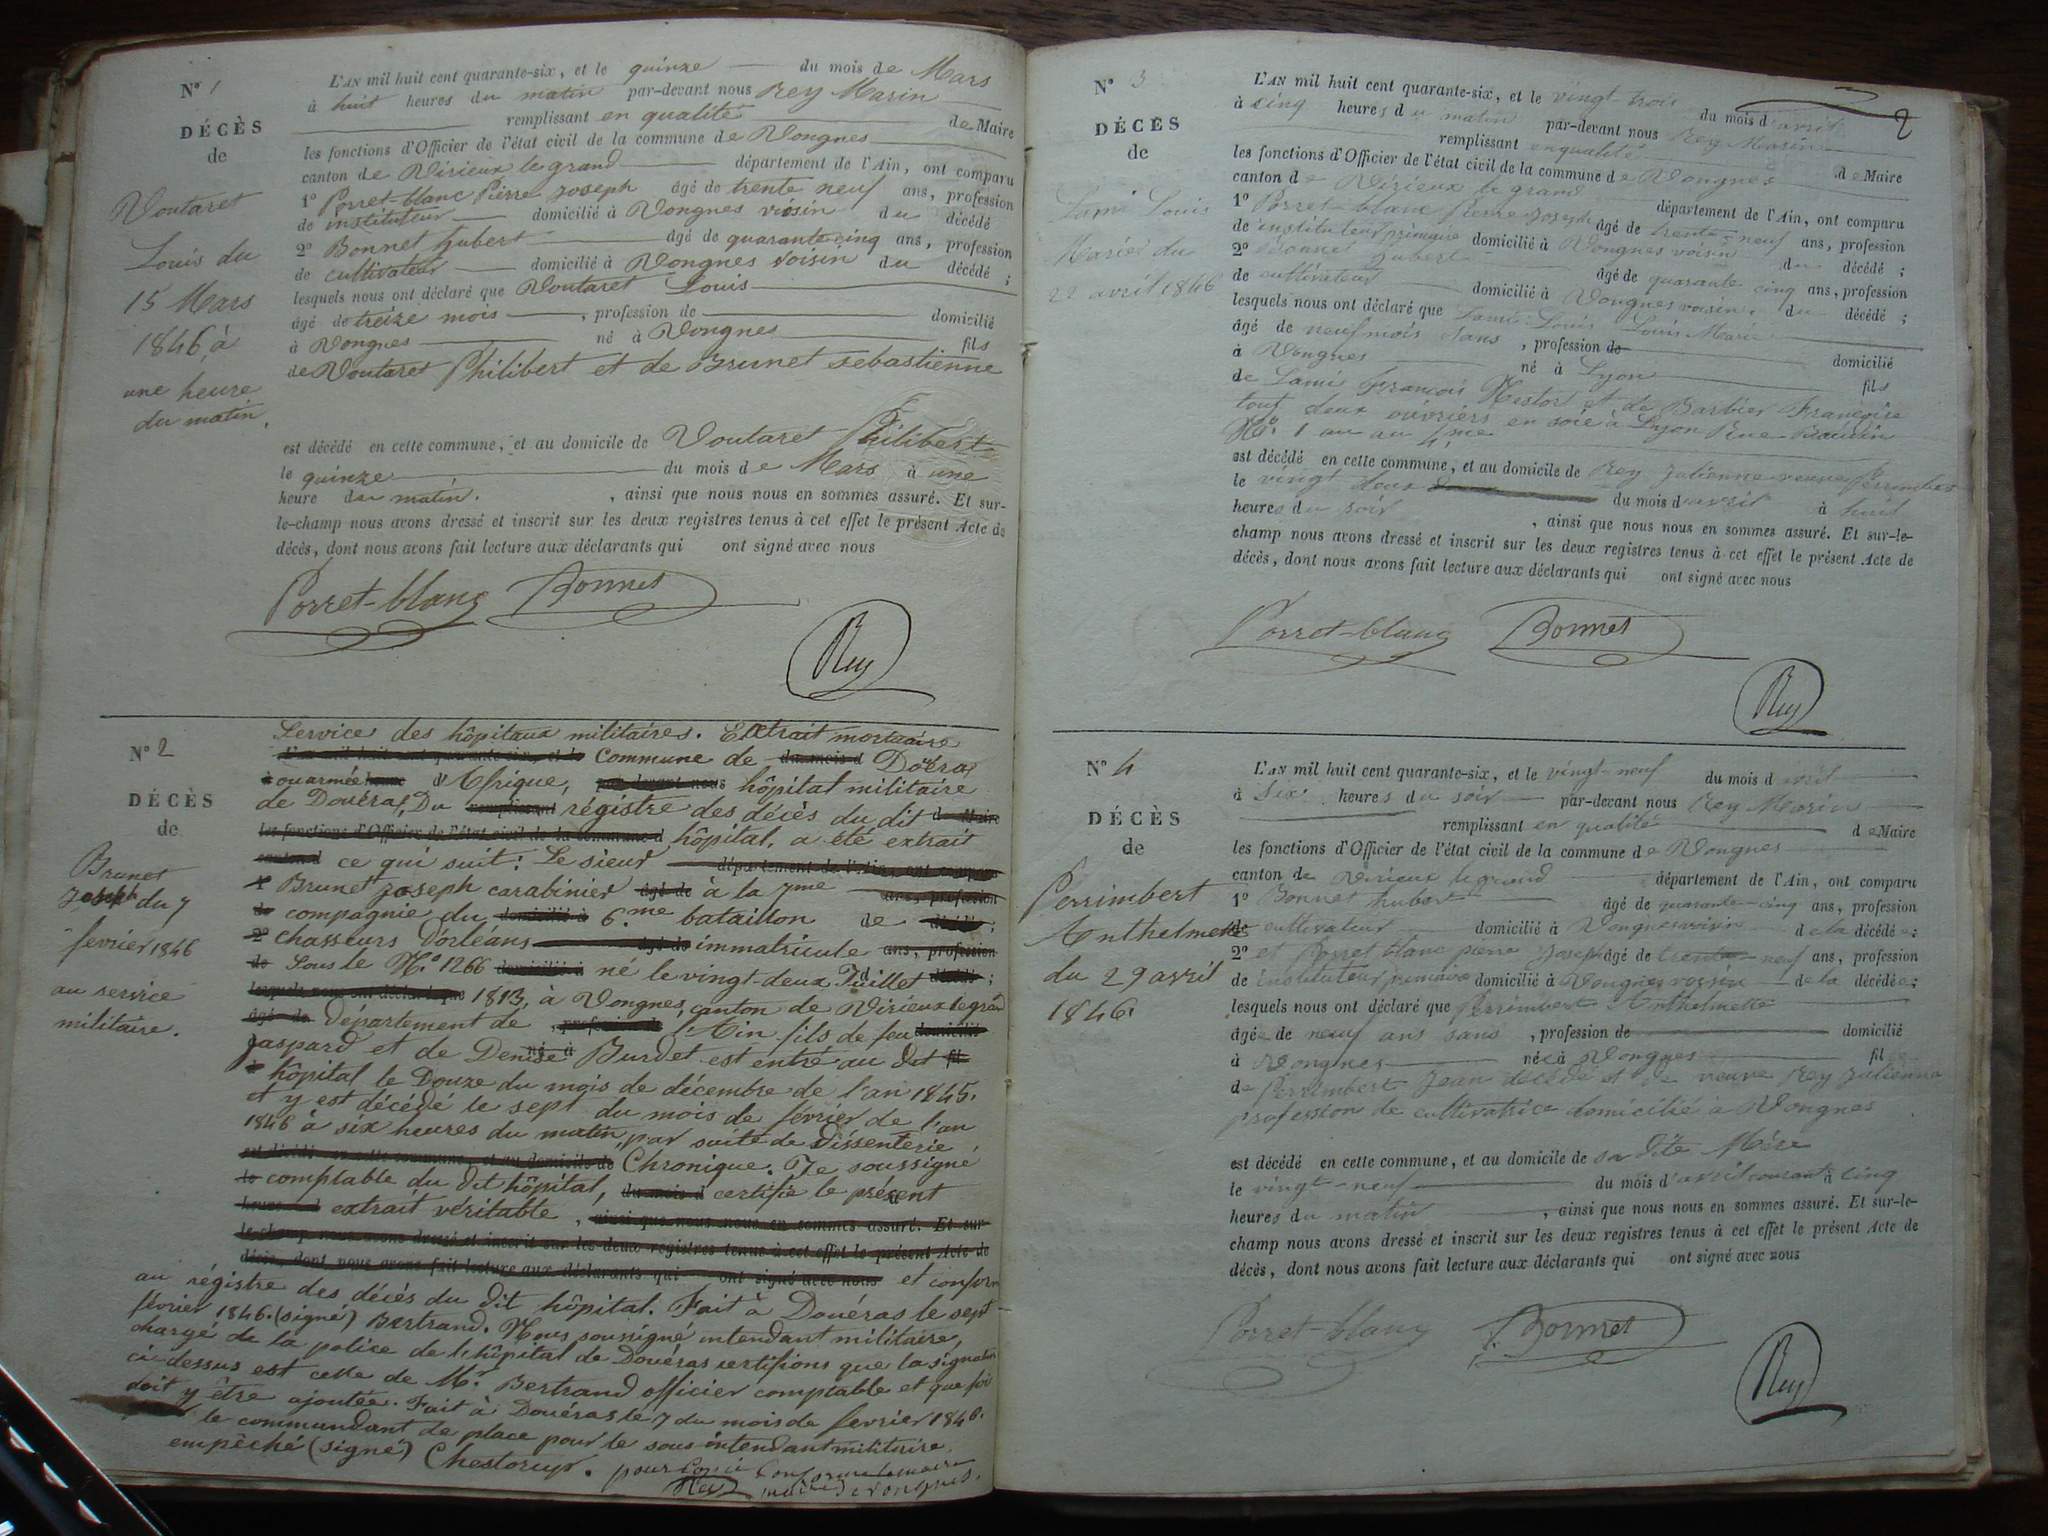 N° 1
DÉCÈS
de
Voutaret
Louis du
15 Mars
1846, à
une heure
du matin,
L'AN mil huit cent quarante-six, et le quinze du mois de Mars
à huit heures du matin par-devant nous Rey Marin
remplissant en qualité de Maire
les fonctions d'Officier de l'état civil de la commune de Vongnes
canton de Virieux le grand département de l'Ain, ont comparu
1° Porret-blanc Pierre Joseph âgé de trente neuf ans, profession
de instituteur domicilié à Vongnes voisin du décédé
2° Bonnet hubert âgé de quarante cinq ans, profession
de cultivateur domicilié à Vongnes voisin du décédé ;
lesquels nous ont déclaré que Voutaret Louis
âgé de treize mois , profession de domicilié
à Vongnes né à Vongnes fils
de Voutaret Philibert et de Brunet sebastienne
est décédé en cette commune, et au domicile de Voutaret Philibert
le quinze du mois de Mars à une
heure du matin. , ainsi que nous nous en sommes assuré. Et sur-
le-champ nous avons dressé et inscrit sur les deux registres tenus à cet effet le présent Acte de
décès, dont nous avons fait lecture aux déclarants qui ont signé avec nous
Porret-blanc Bonnet
Rey
N° 2
DÉCÈS
de
Brunet
Joseph du 7
fevrier 1846
au service
militaire.
Service des hôpitaux militaires. Extrait mortuaire
L'an mil huit cent quarante-six, et le Commune de du mois d Douéra
ou armée d'Afrique, par-devant nous hôpital militaire
de Douéras, Du remplissant régistre des décès du dit de Maire
les fonctions d'Officier de l'état civil de la commune d hôpital, a été extrait
canton d ce qui suit : Le sieur département de l'Ain, ont comparu
1° Brunet Joseph carabinier âgé de à la 7me ans, profession
de compagnie du domicilié à 6.me bataillon de décédé ;
2° chasseurs d'orléans âgé de immatricule ans, profession
de Sous le N.° 1266 domicilié à né le vingt-deux Juillet décédé ;
lesquels nous ont déclaré que 1813, à Vongnes, canton de Virieux le grand
âgé de Département de , profession de l'Ain fils de feu domicilié
gaspard et de Denise né à Burdet est entré au dit fil
de hôpital le Douze du mois de décembre de l'an 1845.
et y est décédé le sept du mois de février de l'an
1846 à six heures du matin, par suite de Dissenterie
est décédé en cette commune, et au domicile de Chronique. Je soussigné
le comptable du dit hôpital, du mois d certifie le présent
heures d extrait véritable , ainsi que nous nous en sommes assuré. Et sur-
le-champ nous avons dressé et inscrit sur les deux registres tenus à cet effet le présent Acte de
décès, dont nous avons fait lecture aux déclarants qui ont signé avec nous et conform
au régistre des décés du dit hôpital. Fait à Douéras le sept
février 1846. (signé) Bertrand. Nous soussigné intendant militaire,
chargé de la police de l'hôpital de Douéras certifions que la signature
ci-dessus est celle de Mr. Bertrand officier comptable et que foi
doit y être ajoutée. Fait à Douéras le 7 du mois de fevrier 1846.
le commandant de place pour le sous intendant militaire
empêché (signé) . pour copie Conforme le maire
Rey maire de vongnes.
2
N° 3
DÉCÈS
de
Lami Louis
Marie du
22 avril 1846
L'AN mil huit cent quarante-six, et le vingt-trois du mois d'avril
à cinq heures du matin par-devant nous Rey Marin
remplissant en qualité de Maire
les fonctions d'Officier de l'état civil de la commune de Vongnes
canton de Virieux le grand département de l'Ain, ont comparu
1° Porret-blanc Pierre Joseph âgé de trente-neuf ans, profession
de instituteur primaire domicilié à Vongnes voisin du décédé ;
2° Bonnet hubert âgé de quarante cinq ans, profession
de cultivateur domicilié à Vongnes voisin. du décédé ;
lesquels nous ont déclaré que Lami Louis Louis Marie
âgé de neuf mois , profession de domicilié
à Vongnes né à Lyon fils
de Lami François Nestor et de Barbier Françoise
tout deux ouvriers en soie à Lyon Rue
N°. 1 au 4me
est décédé en cette commune, et au domicile de Rey Julienne veuve Perrimbert
le vingt deux du mois d'avril à huit
heures du soir , ainsi que nous nous en sommes assuré. Et sur-le-
champ nous avons dressé et inscrit sur les deux registres tenus à cet effet le présent Acte de
décès, dont nous avons fait lecture aux déclarants qui ont signé avec nous
Porret-blanc Bonnet
Rey
N° 4
DÉCÈS
de
Perrimbert
Anthelmette
du 29 avril
1846.
L'AN mil huit cent quarante-six, et le vingt-neuf du mois d'avril
à Six heures du soir par-devant nous Rey Marin
remplissant en qualité de Maire
les fonctions d'Officier de l'état civil de la commune de Vongnes
canton de Virieux le grand département de l'Ain, ont comparu
1° Bonnet hubert âgé de quarante-cinq ans, profession
de cultivateur domicilié à Vongnes voisin de la décédée ;
2° et Porret blanc pierre Joseph âgé de trente-neuf ans, profession
de instituteur primaire domicilié à Vongnes voisin de la décédée ;
lesquels nous ont déclaré que Perrimbert Anthelmette
âgée de neuf ans sans , profession de domicilié
à Vongnes née à Vongnes fil
de Perrimbert Jean décédé et de veuve Rey Julienne
profession de cultivatrice domicilié à Vongnes
est décédé en cette commune, et au domicile de sa dite Mère
le vingt-neuf du mois d'avril courant à cinq
heures du matin , ainsi que nous nous en sommes assuré. Et sur-le-
champ nous avons dressé et inscrit sur les deux registres tenus à cet effet le présent Acte de
décès, dont nous avons fait lecture aux déclarants qui ont signé avec nous
Porret-blanc Bonnet
Rey